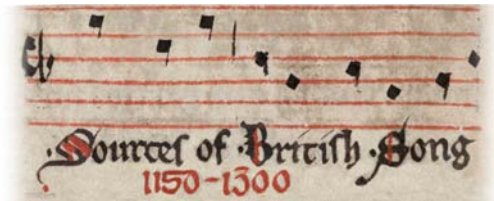 Sources of British Song
1150-1300